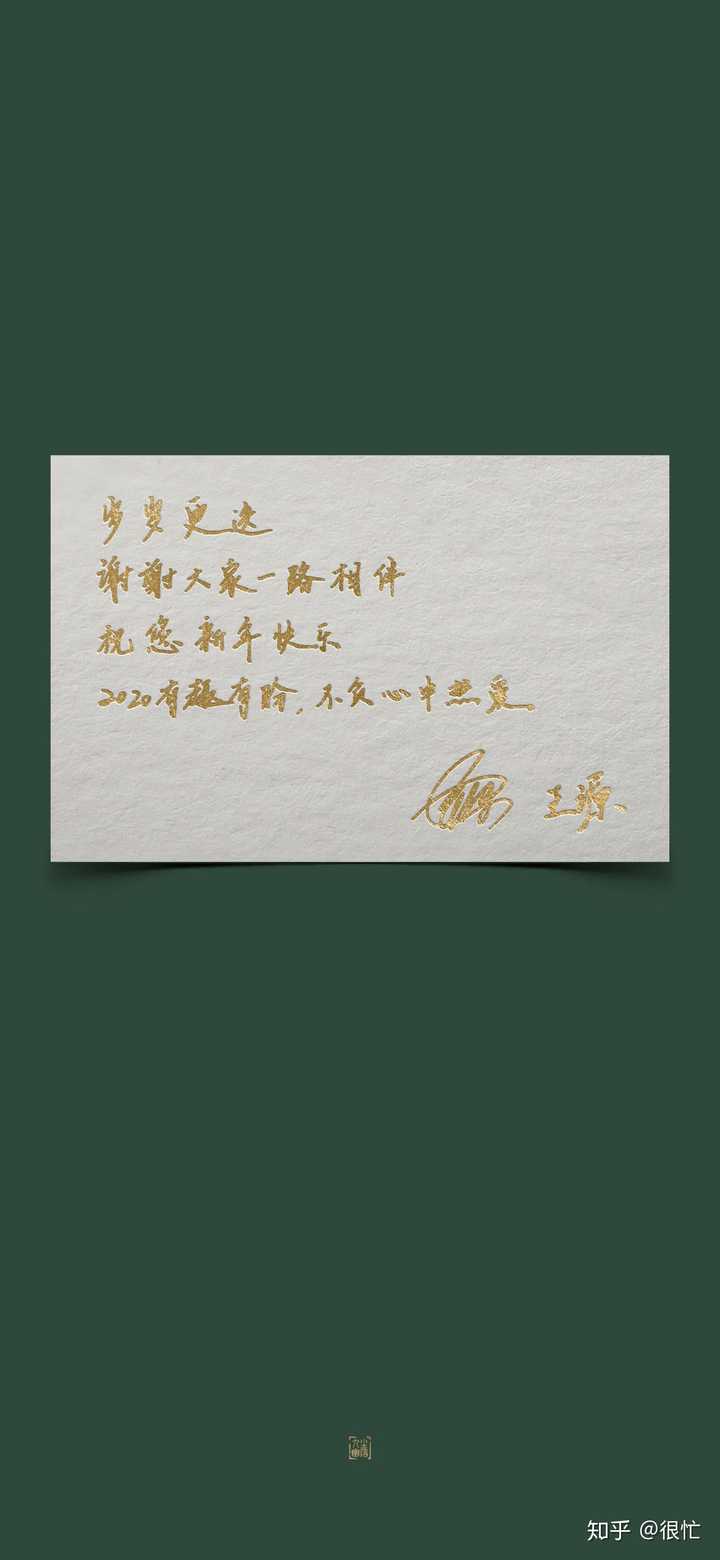 岁岁更迭
谢谢大家一路相伴
祝您新年快乐
2020有趣有盼，不负心中热爱
王源
知乎 @很忙